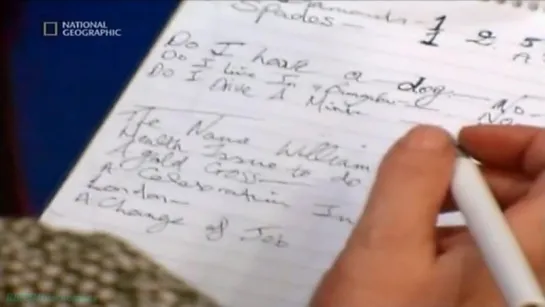 NATIONAL
GEOGRAPHIC
1
Spades - 1 2 5
Do I have a dog. No-
Do I live In a Bungalow No
Do I Drive A Mini
The Name William
Health Issue to do
A gold Cross-
A Celebration In
London-
A Change of Job